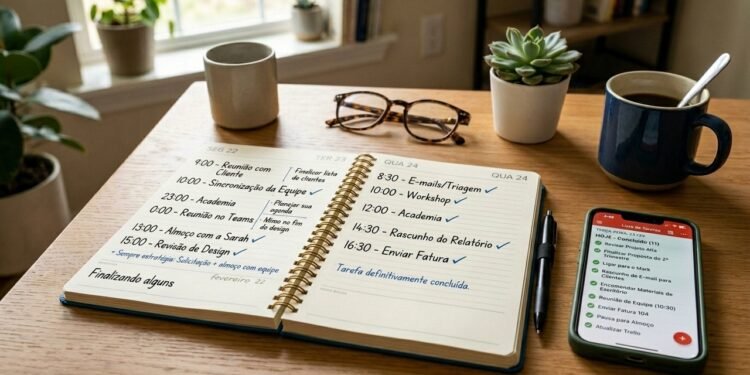 SEG 22
TER 23
9:00 - Reunião com Cliente
Finalizar lista de clientes
10:00 - Sincronização da Equipe ✓
23:00 - Academia
Planejar sua agenda
0:00 - Reunião no Teams
Mimo no fim do design
13:00 - Almoço com a Sarah ✓
15:00 - Revisão de Design ✓
+ Sempre estratégia: Solicitação + almoço com equipe
Finalizando alguns
Fevereiro 22
QUA 24
QUA 24
8:30 - E-mails/Triagem ✓
10:00 - Workshop ✓
12:00 - Academia ✓
14:30 - Rascunho do Relatório ✓
16:30 - Enviar Fatura ✓
Tarefa definitivamente concluída.
Lista de Tarefas
TERÇA-FEIRA, 23 FEV
HOJE - Concluído (11)
Revisar Projeto Alfa
Finalizar Proposta do 2º Trimestre
Ligar para o Mark
Rascunho de E-mail para Clientes
Encomendar Materiais de Escritório
Reunião de Equipe (10:30)
Enviar Fatura 104
Pausa para Almoço
Atualizar Trello